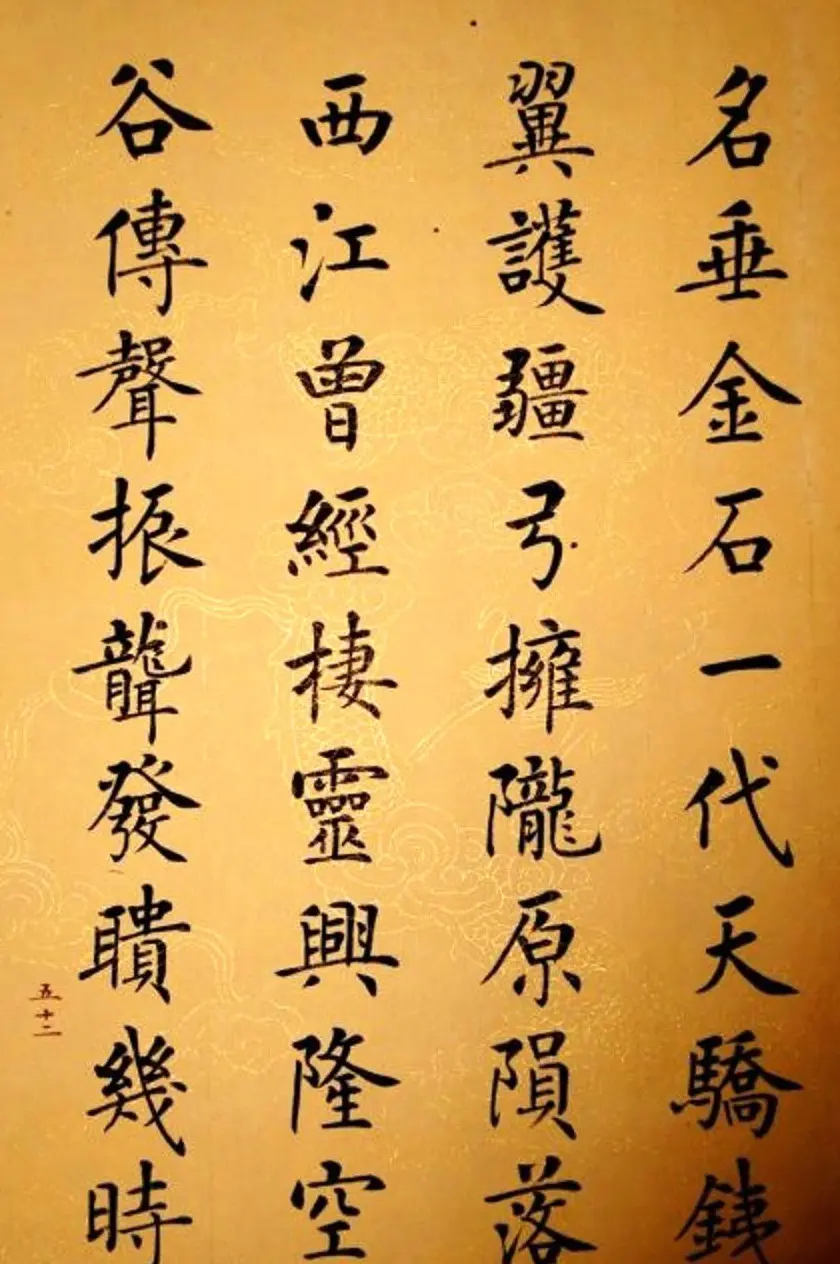 名垂金石一代天驕銕
翼護疆弓擁隴原隕落
西江曾經棲靈興隆空
谷傳聲振聾發聵幾時
五十二